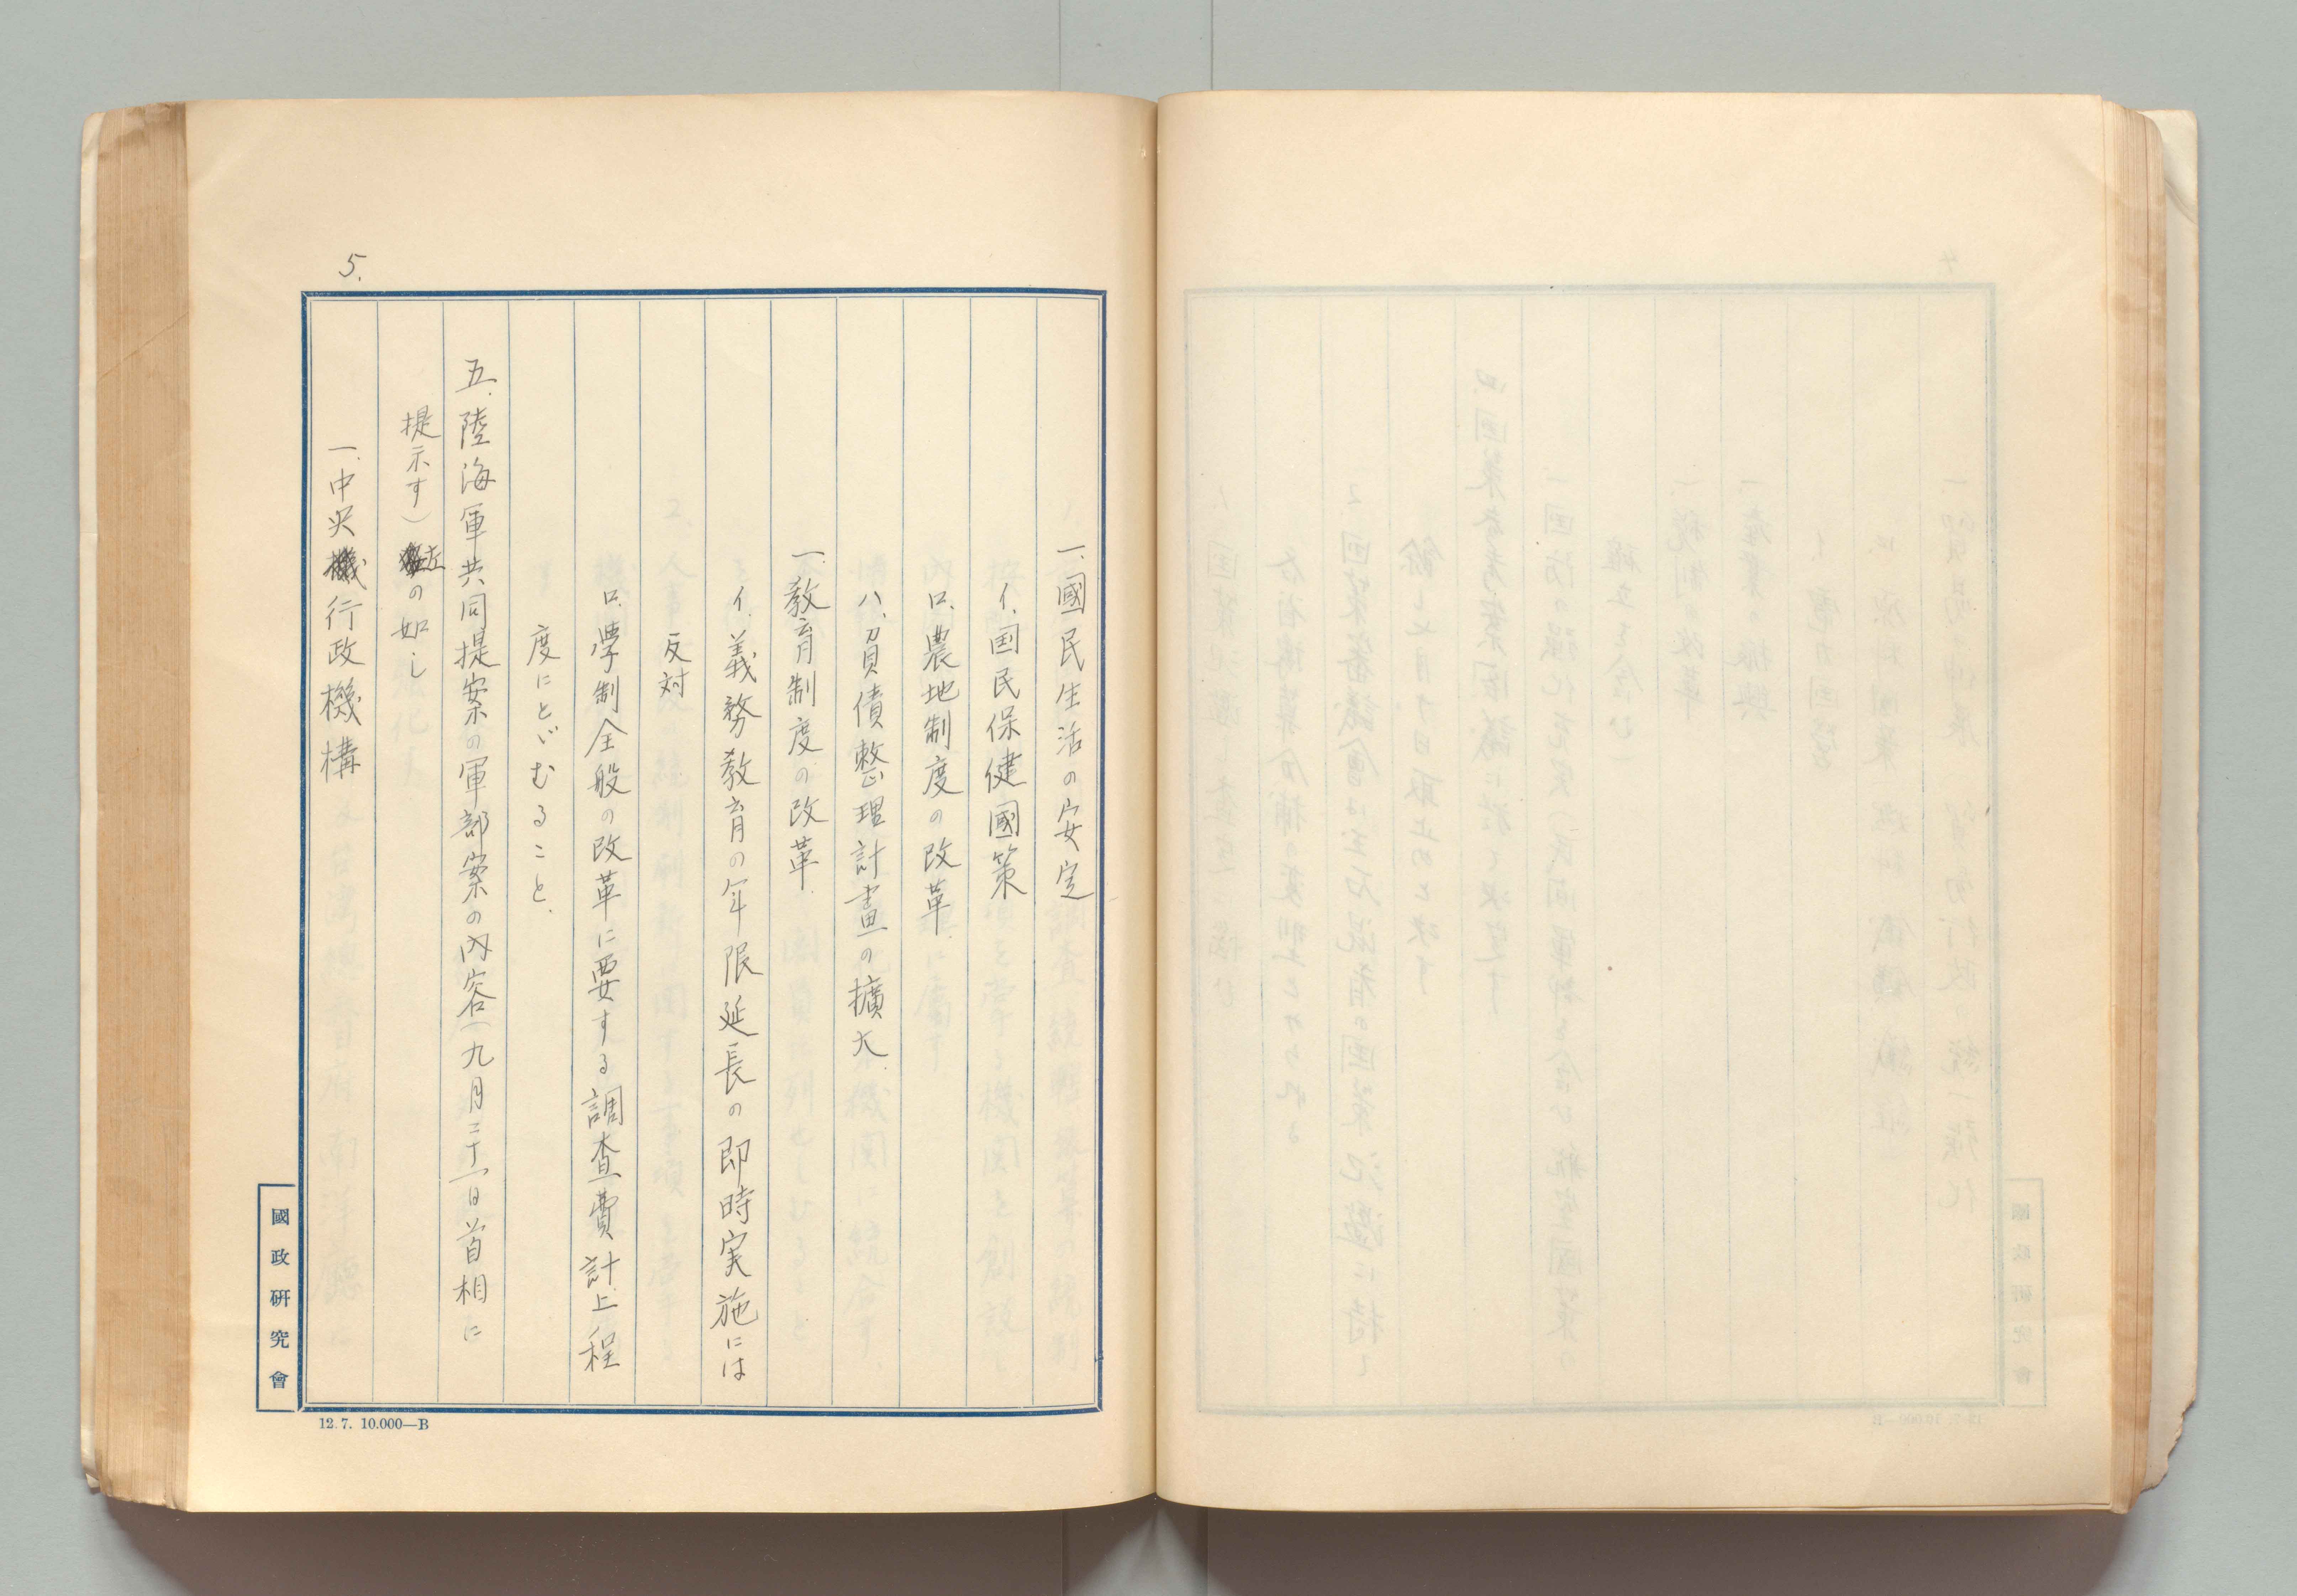 5.
一、國民生活の安定
イ、国民保健國策
ロ、農地制度の改革
ハ、負債整理計畫の擴大
一、教育制度の改革
イ、義務教育の年限延長の即時実施には
反対
ロ、學制全般の改革に要する調査費計上程
度にとゞむること
五、陸海軍共同提案の軍部案の内容(九月二十一日首相に
提示す)左の如し
一、中央行政機構
國政研究會
12.7. 10.000—B